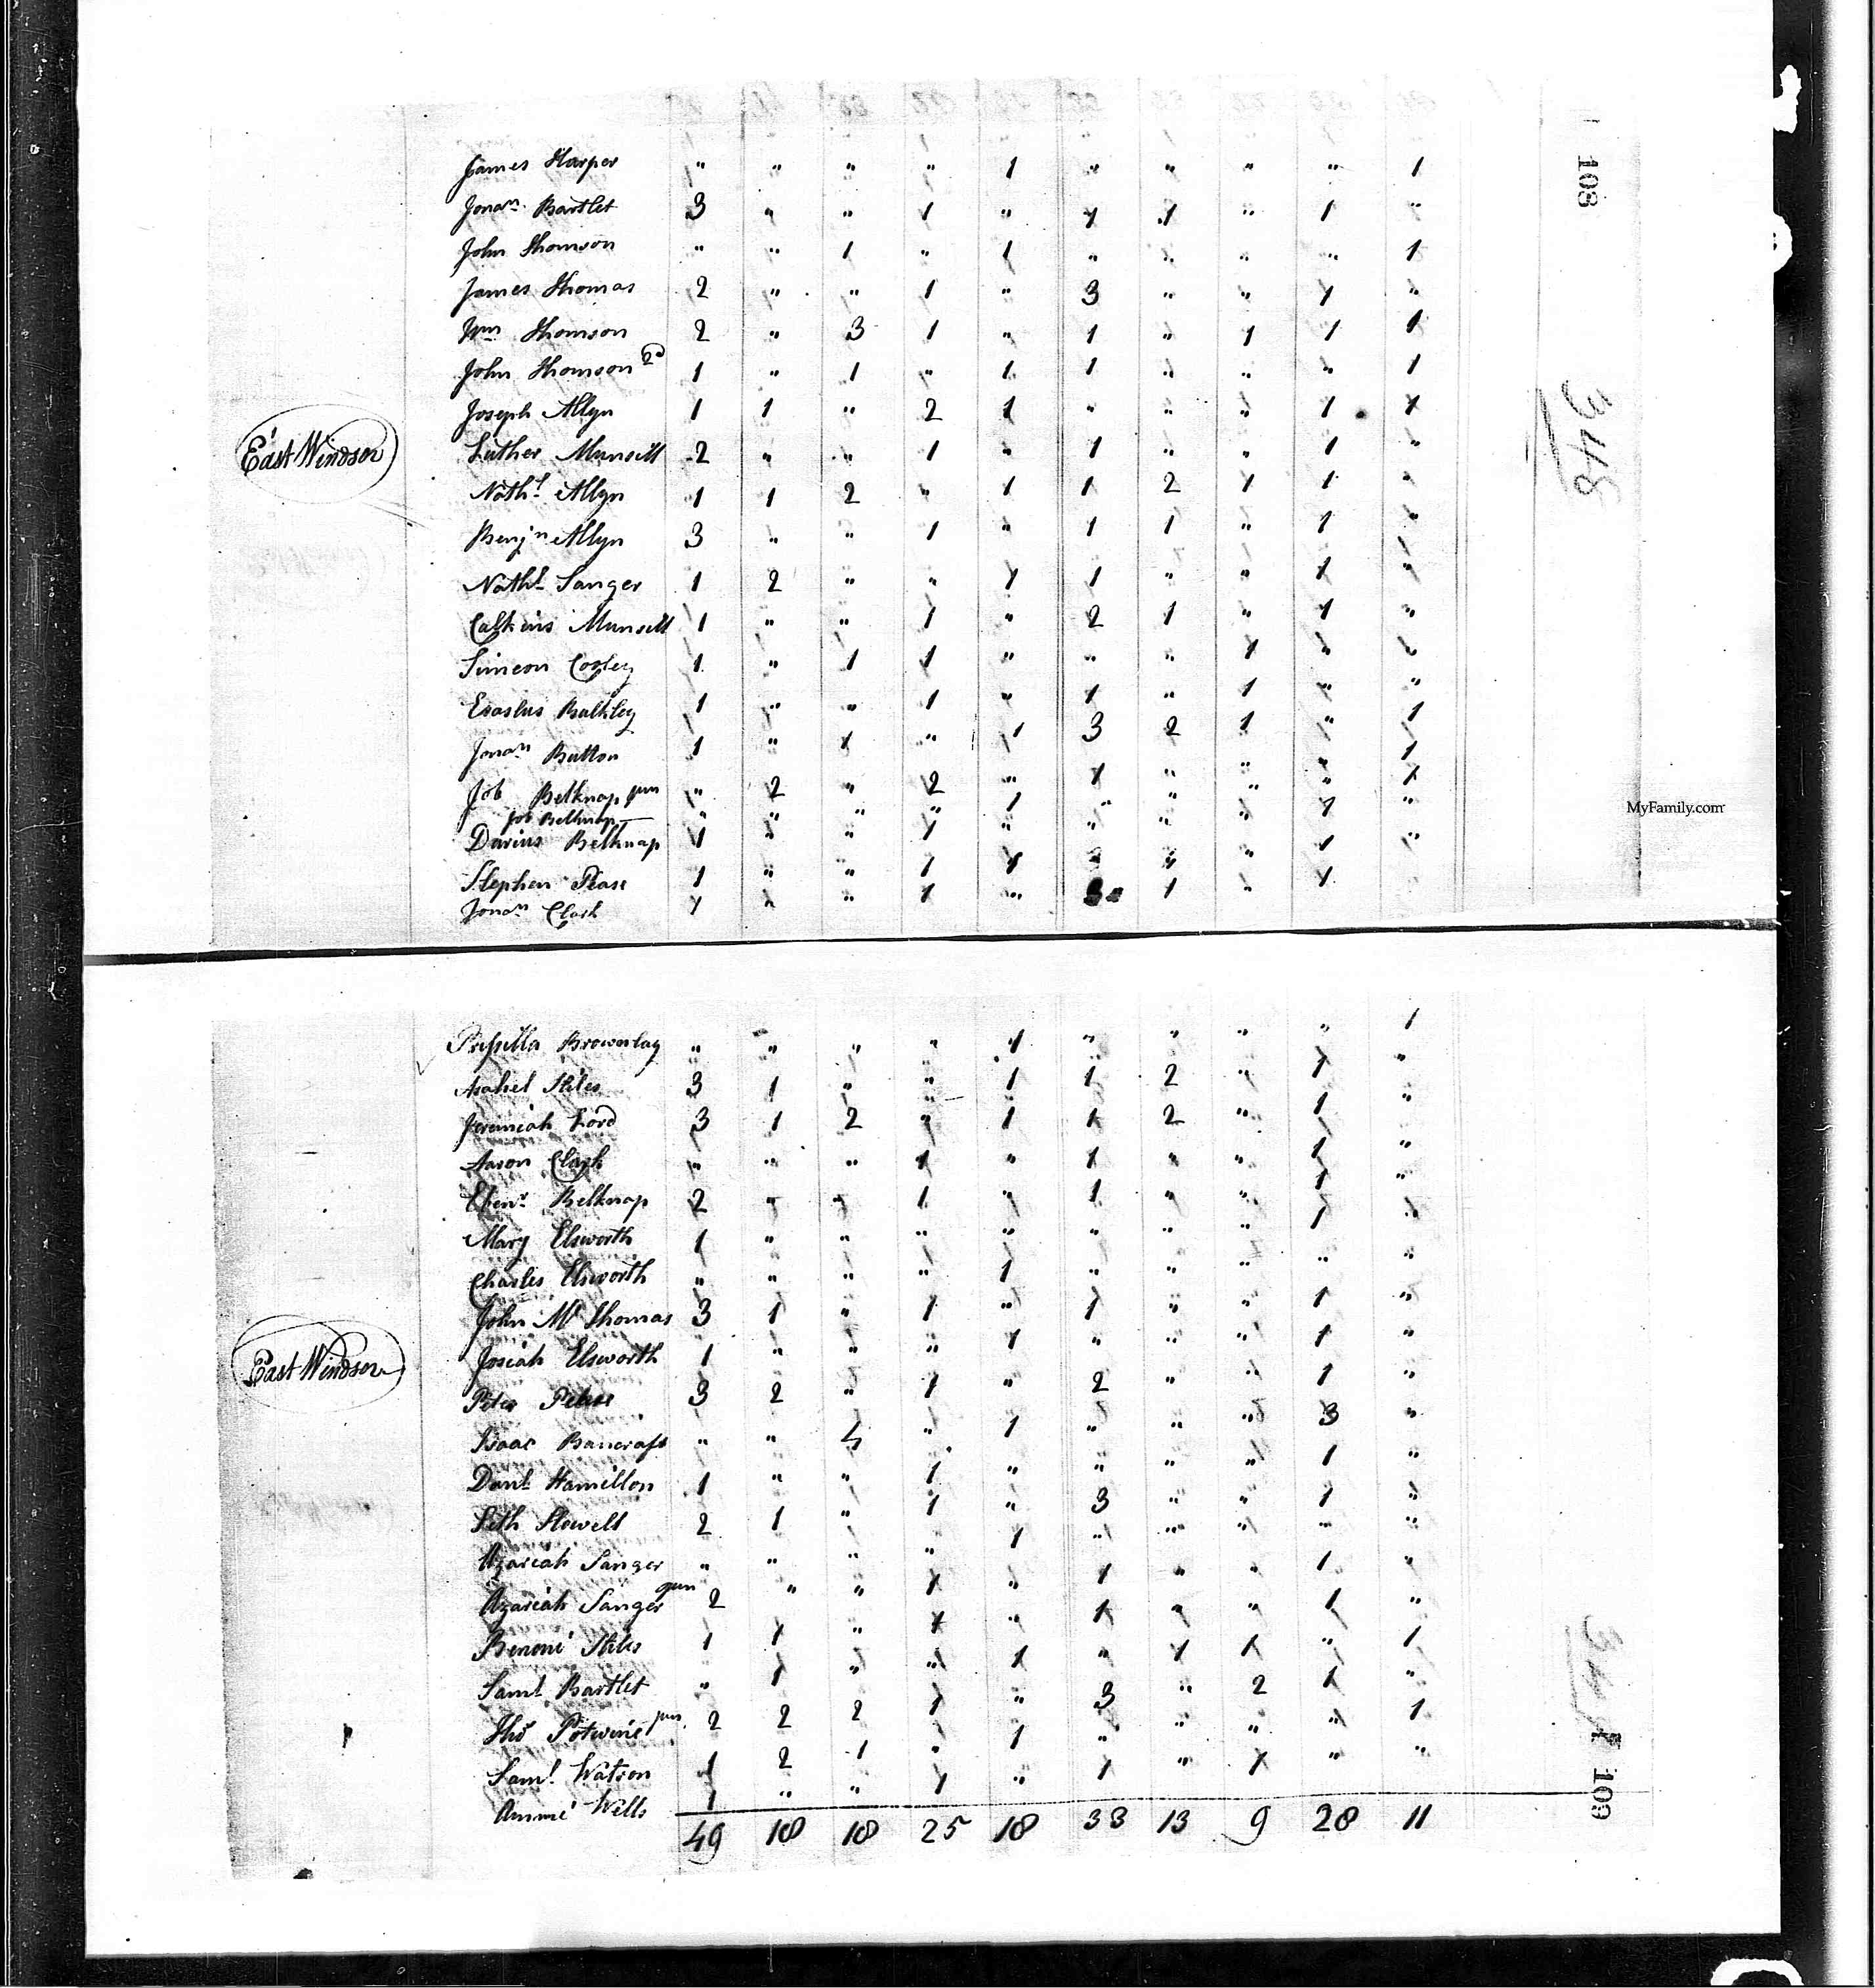 James Harper " " " " 1 " " " " 1
Jonan Bartlet 3 " " 1 " 1 1 " 1 "
John Thomson " " 1 " 1 " " " " 1
James Thomas 2 " " 1 " 3 " " 1 "
Wm Thomson 2 " 3 1 " 1 " 1 1 1
John Thomson 2d 1 " 1 " 1 1 " " " 1
Joseph Allyn 1 1 " 2 1 " " " 1 1
East Windsor
Luther Munsill 2 " " 1 " 1 " " 1 "
Nathl Allyn 1 1 2 " 1 1 2 1 1 "
Benjn Allyn 3 " " 1 " 1 1 " 1 "
Nathl Sanger 1 2 " " 1 1 " " 1 "
Calkins Munsill 1 " " 1 " 2 1 " 1 "
Simeon Cooley 1 " 1 1 " " " 1 " "
Erastus Bulkley 1 " " 1 " 1 " 1 " "
Jonan Button 1 " 1 " 1 3 2 1 " 1
Job Belknap jun " 2 " 2 " 1 " " " 1
Job Belknap " " " " 1 " " " " 1
Darius Belknap 1 " " 1 " " " " 1 "
Stephen Pease 1 " " 1 1 " " " 1 "
Jonan Clark 1 1 " 1 " 3 1 " 1
108
348
MyFamily.com
Prissilla Brownlay " " " " 1 " " " " 1
Asahel Stiles 3 1 " " 1 1 2 " 1 "
Jeremiah Lord 3 1 2 " 1 1 2 " 1 "
Aaron Clark " " " 1 " 1 " " 1 "
Ebenr Belknap 2 " " 1 " 1 " " 1 "
Mary Elsworth 1 " " " " " " " 1 "
Charles Elsworth " " " " 1 " " " " "
John Mc Thomas 3 1 " 1 " 1 " " 1 "
East Windsor
Josiah Elsworth 1 " " " 1 " " " 1 "
Peter Pease 3 2 " 1 " 2 " " 1 "
Isaac Bancraft " " 4 " 1 " " " 3 "
Danl Hamilton 1 " " 1 " " " " 1 "
Seth Stowell 2 1 " 1 " 3 " " 1 "
Azariah Sanger " " " " 1 " " " " "
Azariah Sanger jun 2 " " 1 " 1 " " 1 "
Benoni Stiles 1 1 " 1 " 1 " " 1 "
Saml Bartlet " 1 " " 1 " 1 1 " 1
Tho Potwine jun 2 2 2 1 " 3 " 2 1 "
Saml Watson 1 2 1 " 1 " " " " 1
Ammi Wells 1 " " 1 " 1 " 1 " "
49 18 18 25 18 33 13 9 28 11
109